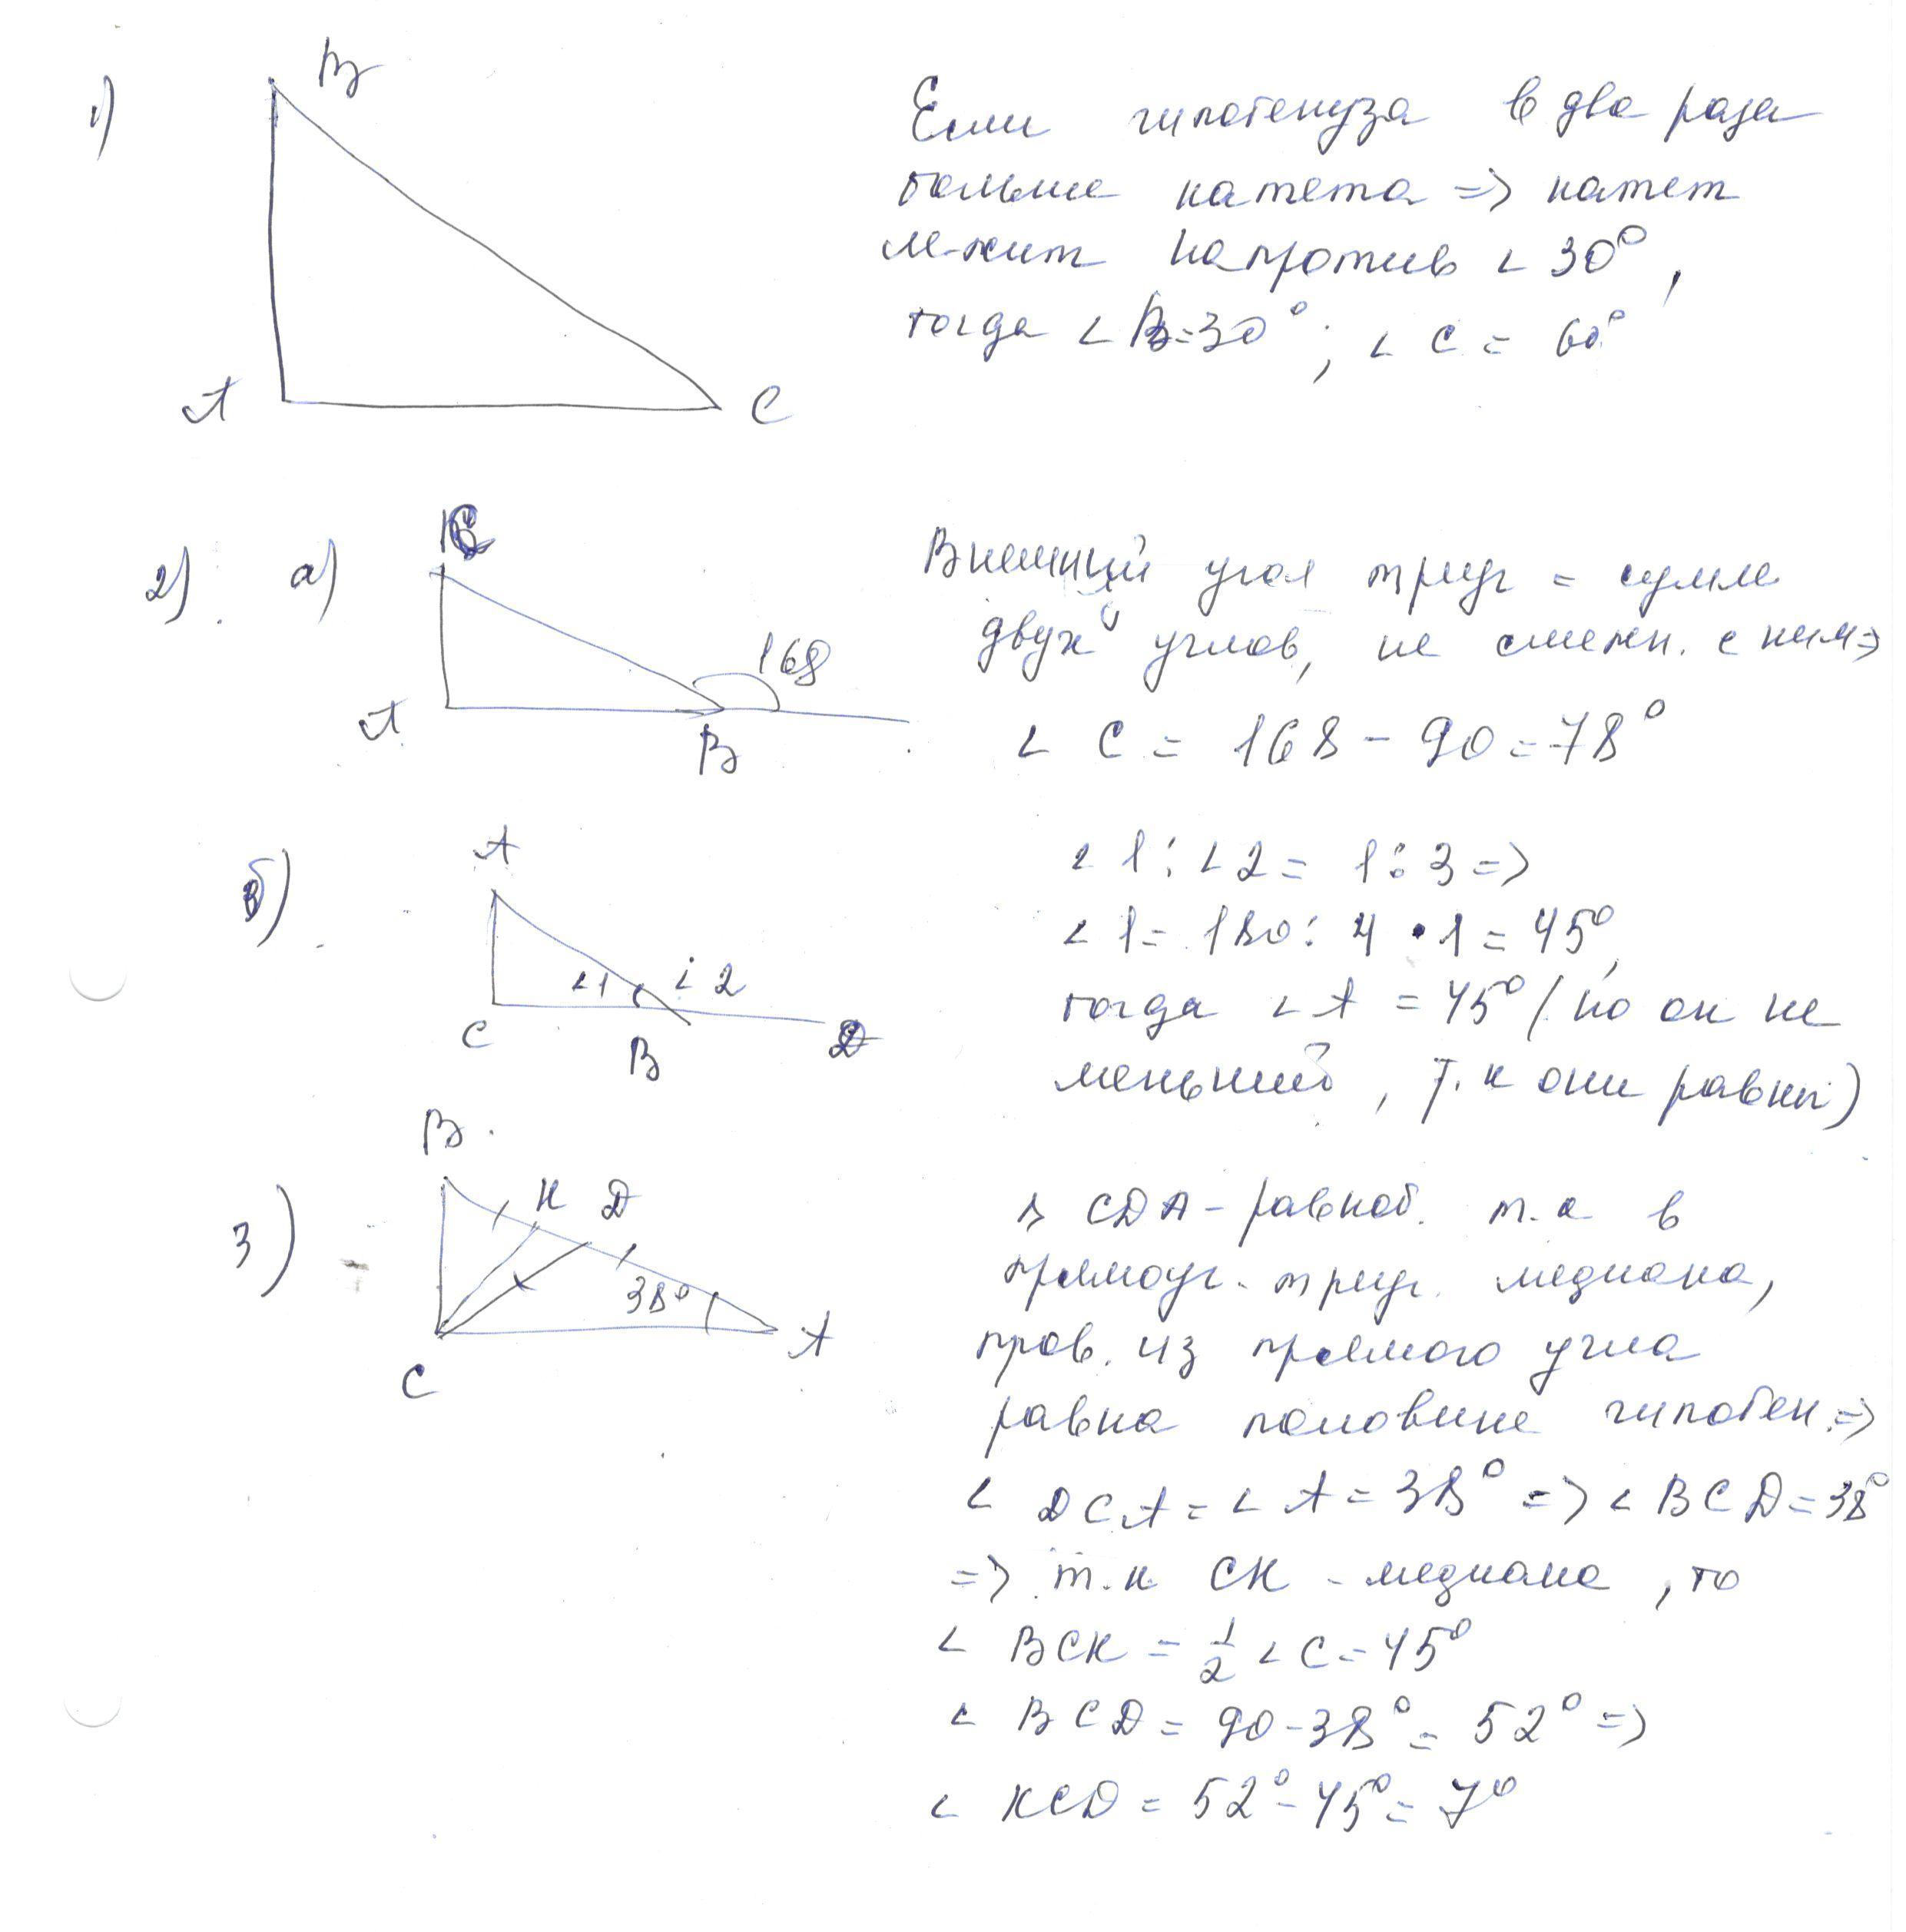 1)
B
A
C
Если гипотенуза в два раза
больше катета => катет
лежит напротив ∠ 30°,
тогда ∠ B=30°; ∠ C = 60°
2) а)
C
168
A
B
Внешний угол треуг = сумме
двух углов, не смежн. с ним =>
∠ C = 168 - 90 = 78°
б)
A
∠1 ∠2
C
B
D
∠ 1 : ∠ 2 = 1 : 3 =>
∠ 1 = 180 : 4 • 1 = 45°,
тогда ∠ A = 45° (но он не
меньший, т.к они равны)
3)
B
K D
38°
A
C
Δ CDA - равноб. т.к в
прямоуг. треуг. медиана,
пров. из прямого угла
равна половине гипотен. =>
∠ DCA = ∠ A = 38° => ∠ BCD = 38°
=> т.к CK - медиана, то
∠ BCK = 1/2 ∠ C = 45°
∠ BCD = 90 - 38° = 52° =>
∠ KCD = 52° - 45° = 7°